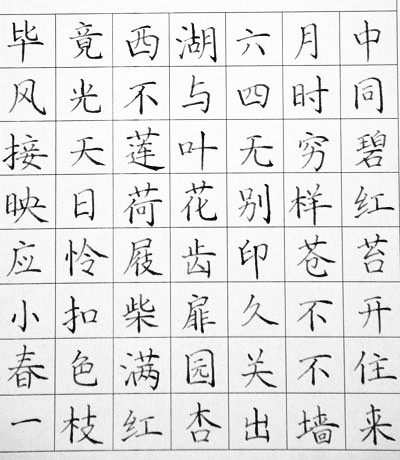 毕竟西湖六月中
风光不与四时同
接天莲叶无穷碧
映日荷花别样红
应怜屐齿印苍苔
小扣柴扉久不开
春色满园关不住
一枝红杏出墙来